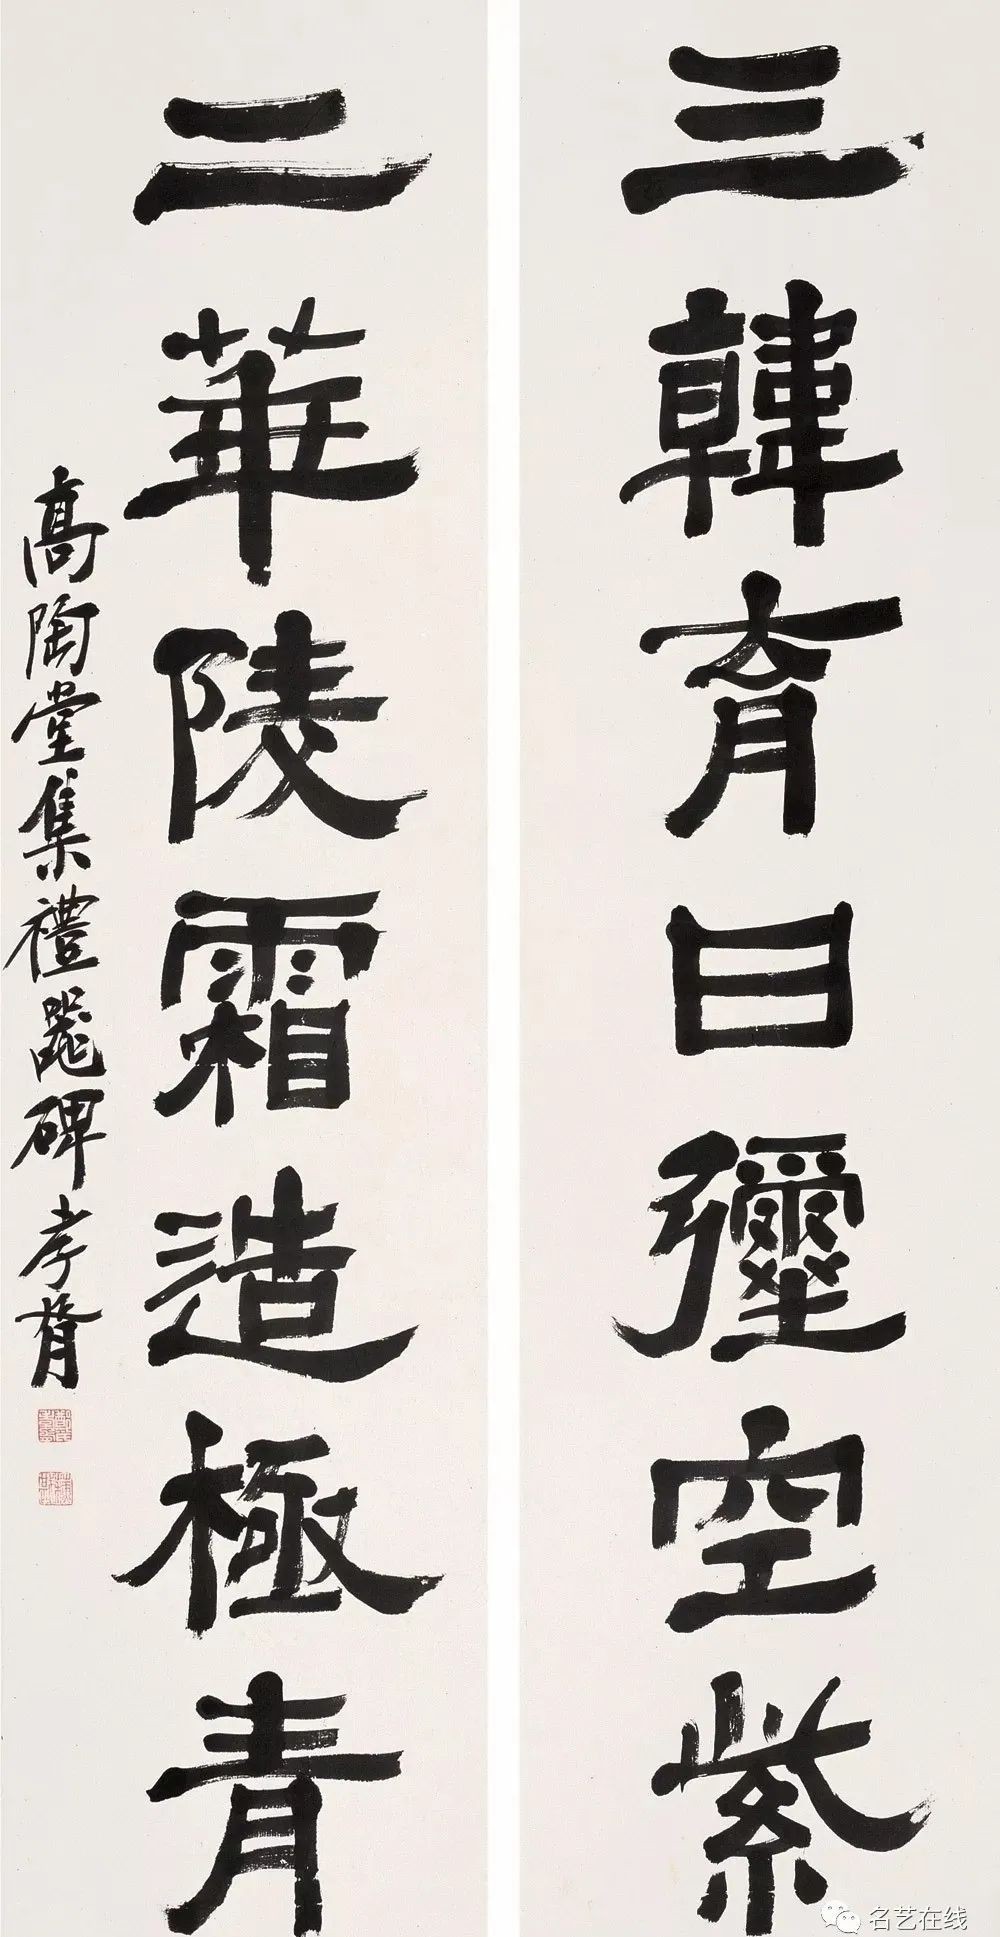 三韓育日彊空紫
二華陵霜造極青
高陶堂集禮器碑孝胥
名艺在线